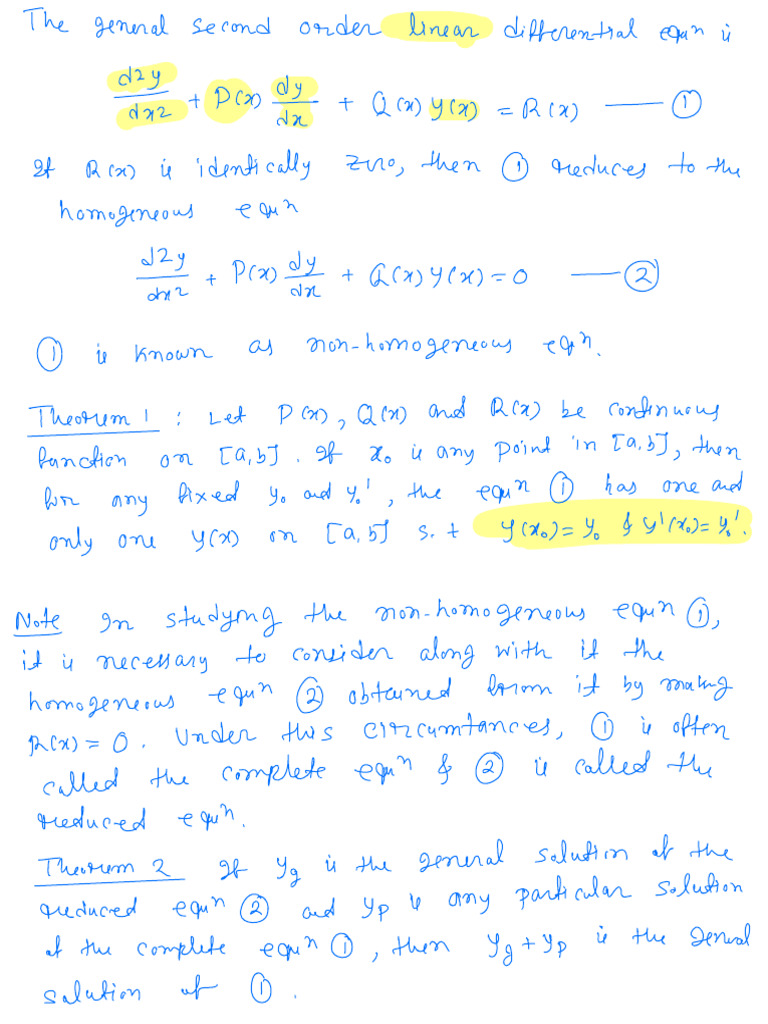 The general second order linear differential equn is
d2y/dx2 + P(x) dy/dx + Q(x) y(x) = R(x) —— ①
If R(x) is identically zero, then ① reduces to the
homogeneous equn
d2y/dx2 + P(x) dy/dx + Q(x) y(x) = 0 —— ②
① is known as non-homogeneous eqn.
Theorem 1 : Let P(x), Q(x) and R(x) be continuous
function on [a,b]. If x₀ is any point in [a,b], then
for any fixed y₀ and y₀', the equn ① has one and
only one y(x) on [a,b] s.t y(x₀) = y₀ & y'(x₀) = y₀'.
Note In studying the non-homogeneous equn ①,
it is necessary to consider along with it the
homogeneous equn ② obtained from it by making
R(x) = 0. Under this circumtances, ① is often
called the complete equn & ② is called the
reduced equn.
Theorem 2 If yg is the general solution of the
reduced equn ② and yp is any particular solution
of the complete equn ①, then yg + yp is the general
solution of ①.